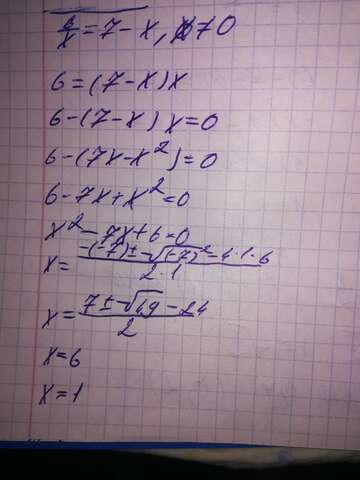 6/x = 7 - x, x ≠ 0
6 = (7 - x)x
6 - (7 - x) x = 0
6 - (7x - x²) = 0
6 - 7x + x² = 0
x² - 7x + 6 = 0
x = (-(-7) ± √((-7)² - 4·1·6)) / (2·1)
x = (7 ± √(49 - 24)) / 2
x = 6
x = 1